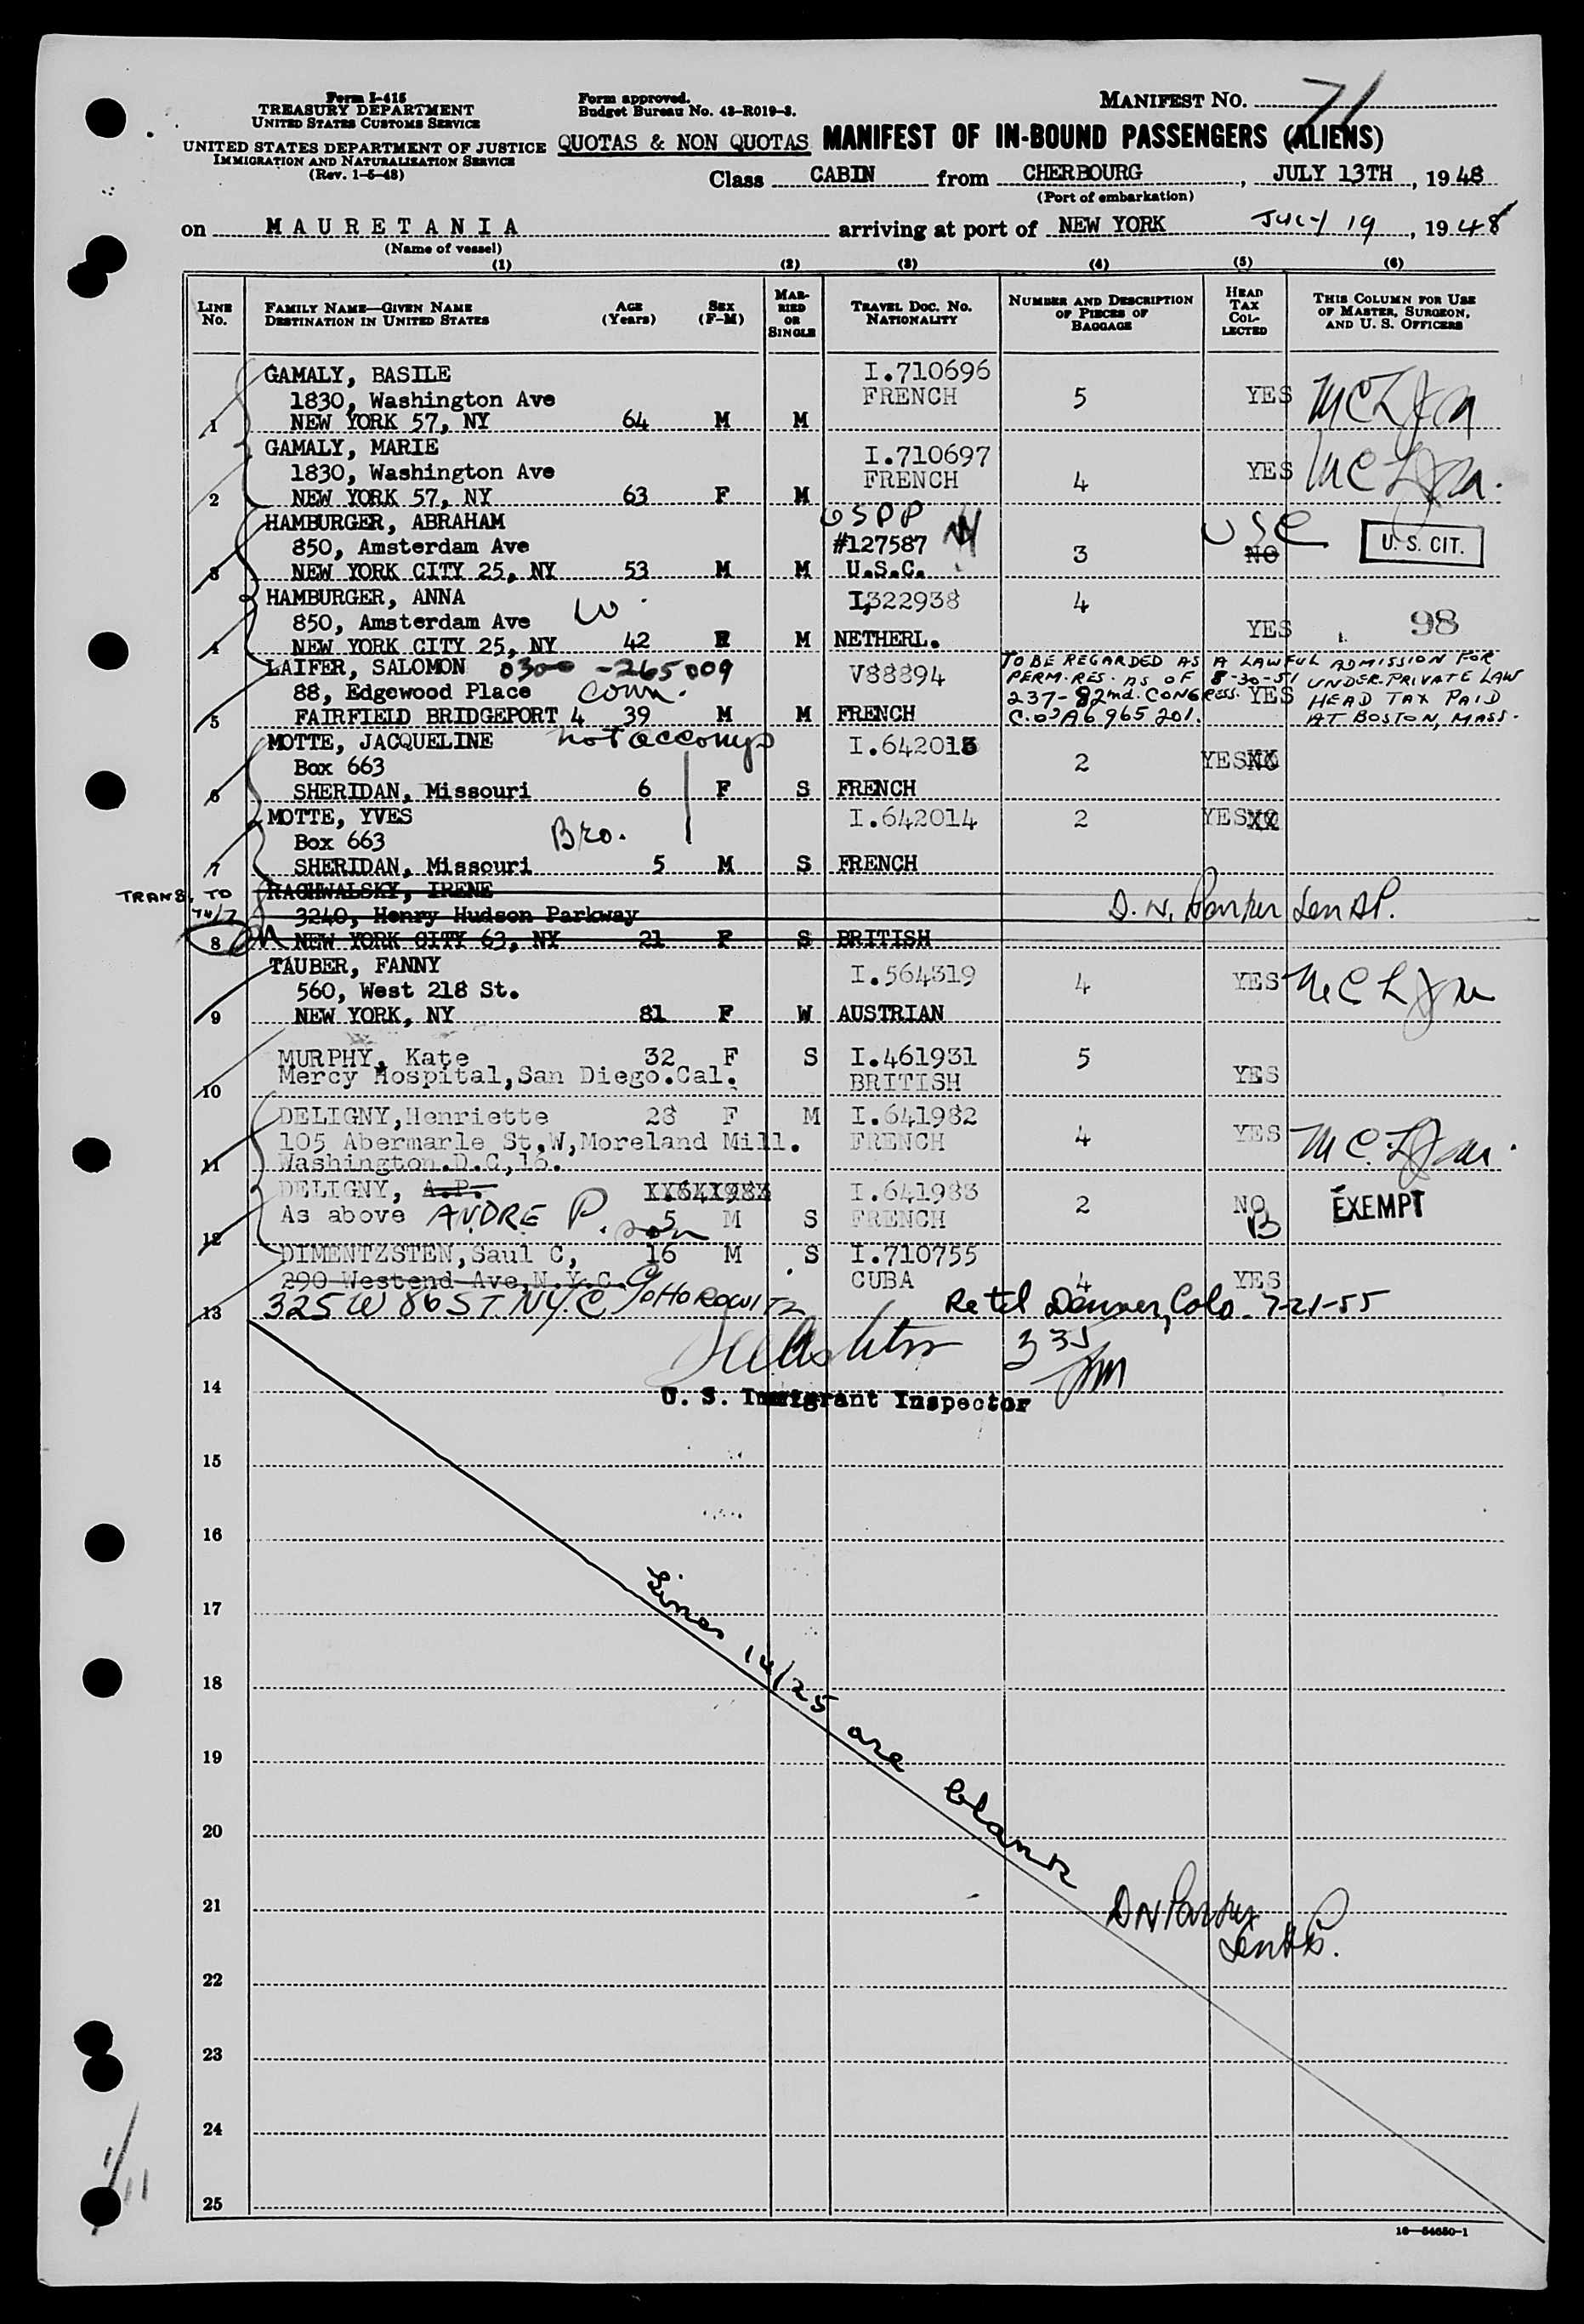 Form I-415
TREASURY DEPARTMENT
UNITED STATES CUSTOMS SERVICE
UNITED STATES DEPARTMENT OF JUSTICE
IMMIGRATION AND NATURALIZATION SERVICE
(Rev. 1-5-48)
Form approved.
Budget Bureau No. 43-R019-3.
MANIFEST No. 71
QUOTAS & NON QUOTAS MANIFEST OF IN-BOUND PASSENGERS (ALIENS)
Class CABIN from CHERBOURG, JULY 13TH, 1948
(Port of embarkation)
on MAURETANIA arriving at port of NEW YORK July 19, 1948
(Name of vessel)
(1) (2) (3) (4) (5) (6)
LINE No. FAMILY NAME—GIVEN NAME DESTINATION IN UNITED STATES AGE (Years) SEX (F-M) MARRIED OR SINGLE TRAVEL DOC. NO. NATIONALITY NUMBER AND DESCRIPTION OF PIECES OF BAGGAGE HEAD TAX COLLECTED THIS COLUMN FOR USE OF MASTER, SURGEON, AND U. S. OFFICERS
GAMALY, BASILE I.710696
1830, Washington Ave FRENCH 5 YES
1 NEW YORK 57, NY 64 M M
GAMALY, MARIE I.710697
1830, Washington Ave FRENCH 4 YES
2 NEW YORK 57, NY 63 F M
HAMBURGER, ABRAHAM USPP USC
850, Amsterdam Ave #127587 3 NO U. S. CIT.
3 NEW YORK CITY 25, NY 53 M M U.S.C.
HAMBURGER, ANNA W. I,322938 4
850, Amsterdam Ave YES 98
4 NEW YORK CITY 25, NY 42 F M NETHERL.
LAIFER, SALOMON 0300 -265009 V88894 TO BE REGARDED AS A LAWFUL ADMISSION FOR
88, Edgewood Place Conn. PERM. RES. AS OF 8-30-51 UNDER PRIVATE LAW
237-82nd. CONGRESS. YES HEAD TAX PAID
5 FAIRFIELD BRIDGEPORT 4 39 M M FRENCH C.O. A6 965 201. AT BOSTON, MASS.
MOTTE, JACQUELINE not accomp I.642013
Box 663 2 YES
6 SHERIDAN, Missouri 6 F S FRENCH
MOTTE, YVES I.642014 2 YES
Box 663 Bro.
7 SHERIDAN, Missouri 5 M S FRENCH
TRANS. TO RACHWALSKY, IRENE
74/7 3240, Henry Hudson Parkway D. N. Parker
8 NEW YORK CITY 63, NY 21 F S BRITISH
TAUBER, FANNY I.564319
560, West 218 St. 4 YES
9 NEW YORK, NY 81 F W AUSTRIAN
MURPHY, Kate 32 F S I.461931 5
10 Mercy Hospital, San Diego.Cal. BRITISH YES
DELIGNY,Henriette 28 F M I.641982
105 Abermarle St.W,Moreland Mill. FRENCH 4 YES
11 Washington.D.C,16.
DELIGNY, A.P. I.641983
As above ANDRE P. son 5 M S FRENCH 2 NO EXEMPT
12
DIMENTZSTEN,Saul C, 16 M S I.710755
290 Westend Ave,N.Y.C. CUBA 4 YES
13 325 W 86 ST. NY.C C/O HOROWITZ Re tel Denver, Colo. 7-21-55
335
14 U. S. Immigrant Inspector
15
16
17
18
19
20
21
22
23
24
25
Lines 14/25 are blank
DN Parker
16—54650-1